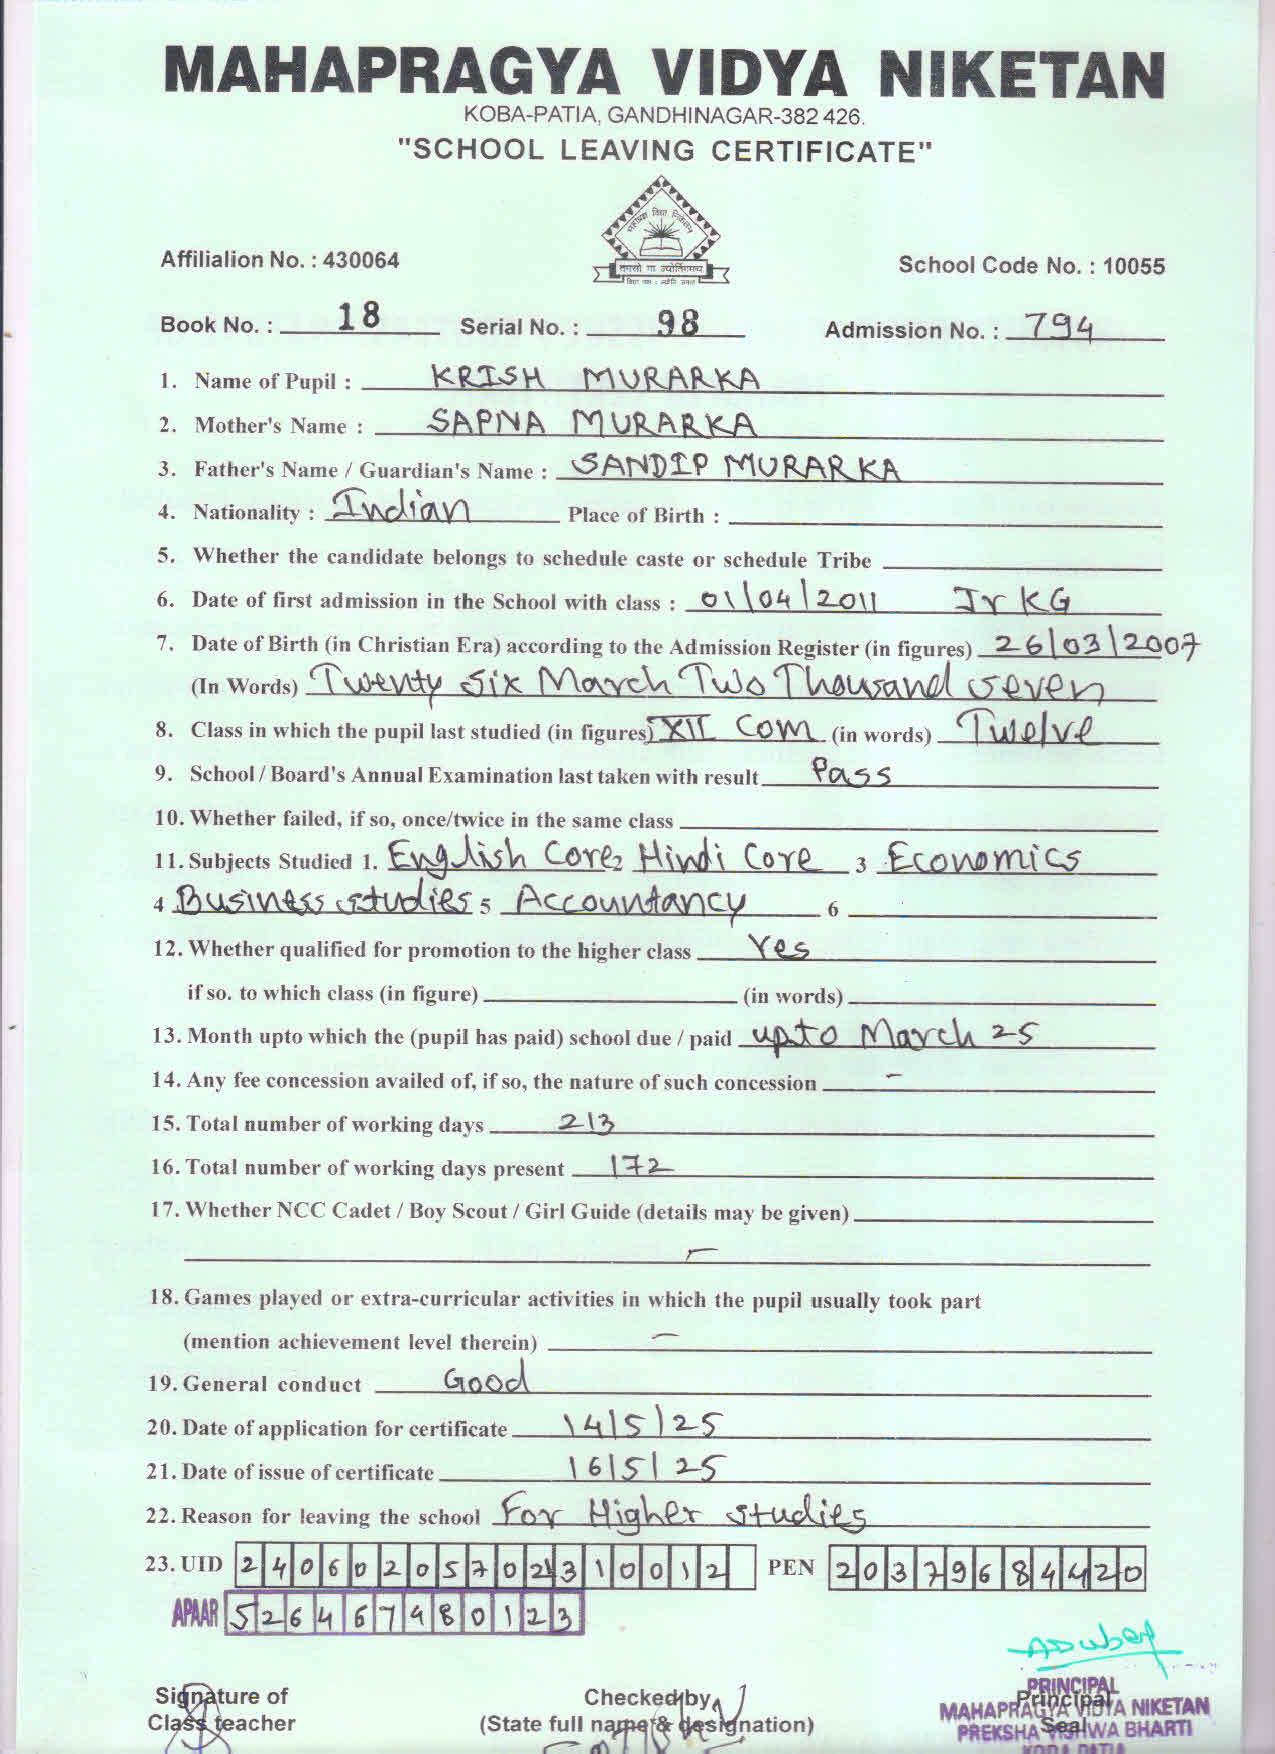 MAHAPRAGYA VIDYA NIKETAN
KOBA-PATIA, GANDHINAGAR-382 426.
"SCHOOL LEAVING CERTIFICATE"
महाप्रज्ञ विद्या निकेतन
तमसो मा ज्योतिर्गमय
Affilialion No. : 430064
School Code No. : 10055
Book No. : 18 Serial No. : 98 Admission No. : 794
1. Name of Pupil : KRISH MURARKA
2. Mother's Name : SAPNA MURARKA
3. Father's Name / Guardian's Name : SANDIP MURARKA
4. Nationality : Indian Place of Birth :
5. Whether the candidate belongs to schedule caste or schedule Tribe
6. Date of first admission in the School with class : 01/04/2011 Jr KG
7. Date of Birth (in Christian Era) according to the Admission Register (in figures) 26/03/2007
(In Words) Twenty Six March Two Thousand Seven
8. Class in which the pupil last studied (in figures) XII Com (in words) Twelve
9. School / Board's Annual Examination last taken with result Pass
10. Whether failed, if so, once/twice in the same class
11. Subjects Studied 1. English Core 2 Hindi Core 3 Economics
4 Business Studies 5 Accountancy 6
12. Whether qualified for promotion to the higher class Yes
if so. to which class (in figure) (in words)
13. Month upto which the (pupil has paid) school due / paid upto March 25
14. Any fee concession availed of, if so, the nature of such concession -
15. Total number of working days 213
16. Total number of working days present 172
17. Whether NCC Cadet / Boy Scout / Girl Guide (details may be given)
-
18. Games played or extra-curricular activities in which the pupil usually took part
(mention achievement level therein) -
19. General conduct Good
20. Date of application for certificate 14/5/25
21. Date of issue of certificate 16/5/25
22. Reason for leaving the school For Higher Studies
23. UID 24060205702310012 PEN 20379684420
APAAR 526467480123
Signature of
Class teacher
Checked by
(State full name & designation)
Principal
Seal
PRINCIPAL
MAHAPRAGYA VIDYA NIKETAN
PREKSHA VISHWA BHARTI
KOBA PATIA